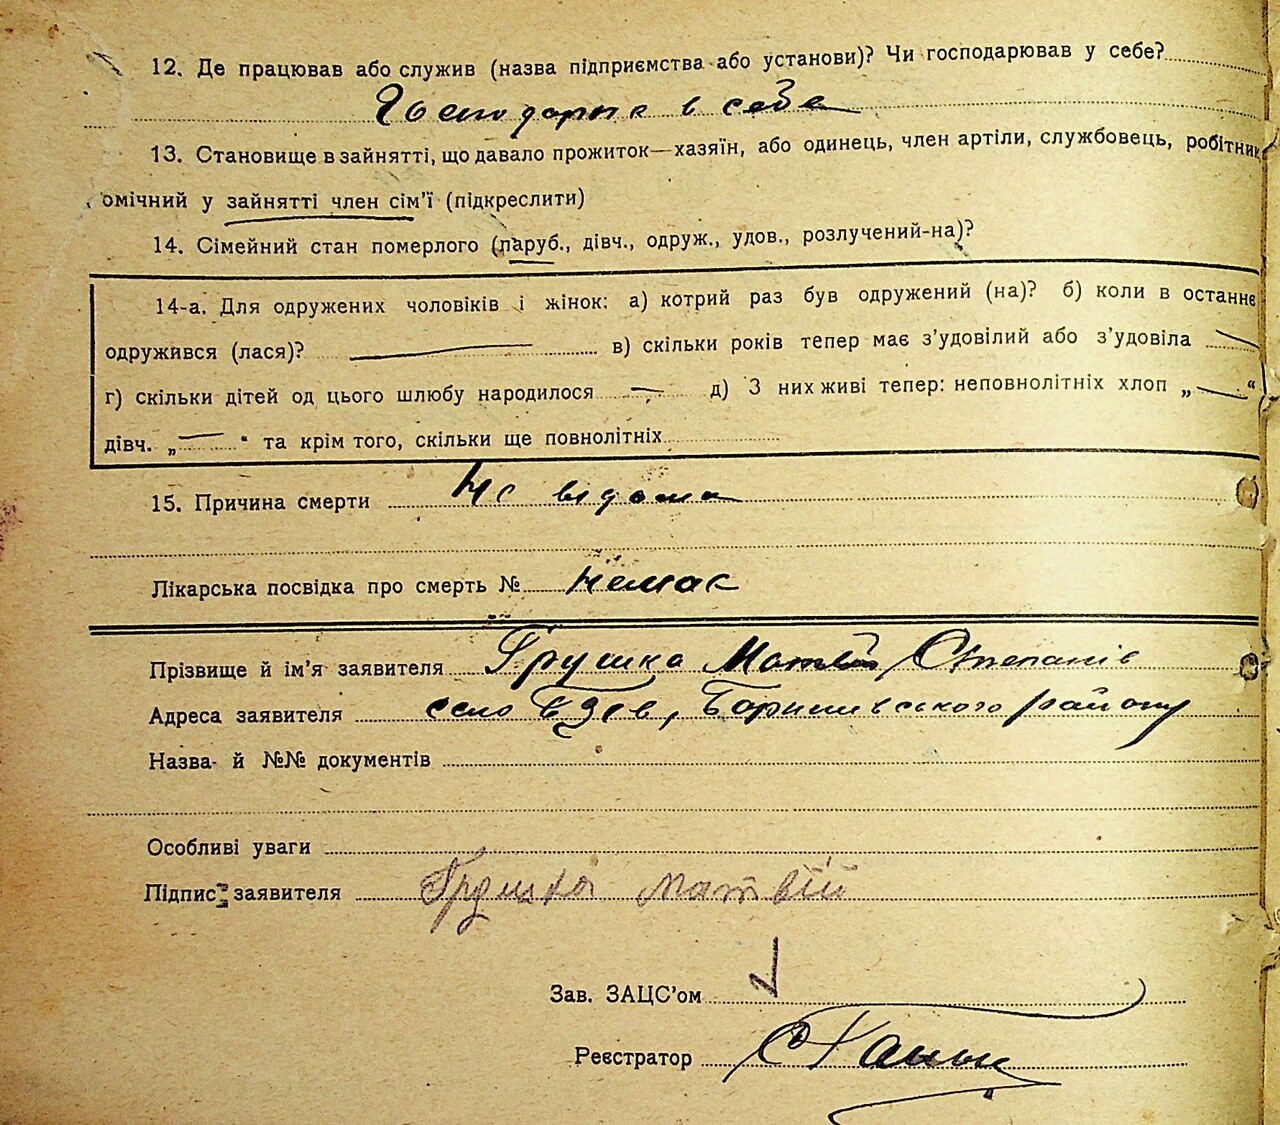 12. Де працював або служив (назва підприємства або установи)? Чи господарював у себе?
Господарює в себе
13. Становище в зайнятті, що давало прожиток—хазяїн, або одинець, член артіли, службовець, робітник
омічний у зайнятті член сім'ї (підкреслити)
14. Сімейний стан померлого (паруб., дівч., одруж., удов., розлучений-на)?
14-а. Для одружених чоловіків і жінок: а) котрий раз був одружений (на)? б) коли в останнє
одружився (лася)? в) скільки років тепер має з'удовілий або з'удовіла
г) скільки дітей од цього шлюбу народилося — д) З них живі тепер: неповнолітніх хлоп „ — “
дівч. „ — “ та крім того, скільки ще повнолітніх
15. Причина смерти Не відома
Лікарська посвідка про смерть № немає
Прізвище й ім'я заявителя Грушка Матвій Степанів
Адреса заявителя село, Боришівського району
Назва й №№ документів
Особливі уваги
Підпис заявителя Грушка Матвій
Зав. ЗАЦС'ом
Реєстратор